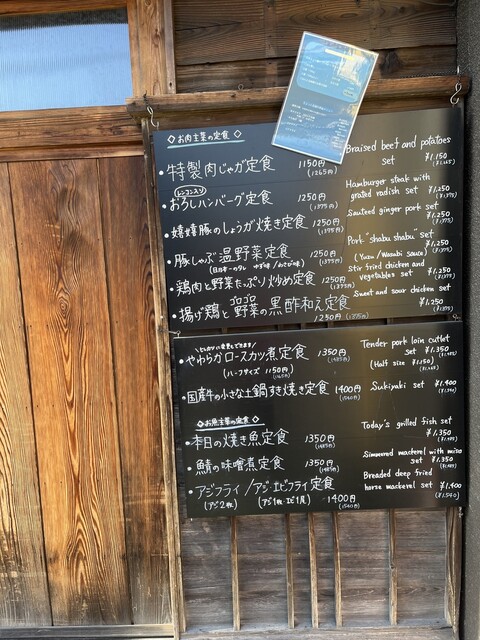 ◇お肉主菜の定食◇
・特製肉じゃが定食 1150円
(1265円)
Braised beef and potatoes
set ¥1,150
レンコン入り
・おろしハンバーグ定食 1250円
(1375円)
Hamburger steak with
grated radish set ¥1,250
(¥1,375)
・嬉嬉豚のしょうが焼き定食 1250円
(1375円)
Sauteed ginger pork set
¥1,250
(¥1,375)
・豚しゃぶ温野菜定食 1250円
(1375円)
Pork "shabu shabu" set
(Yuzu/Wasabi sauce) ¥1,250
(¥1,375)
・鶏肉と野菜たっぷり炒め定食 1250円
(1375円)
Stir fried chicken and
vegetables set ¥1,250
(¥1,375)
・揚げ鶏とゴロゴロ野菜の黒酢和え定食
1250円 (1375円)
Sweet and sour chicken set
¥1,250
(¥1,375)
・やわらかロースカツ煮定食 1350円
(1485円)
(ハーフサイズ 1150円)
(1265円)
Tender pork loin cutlet
set ¥1,350
(Half size ¥1,150)
・国産牛の小さな土鍋すき焼き定食 1400円
(1540円)
Sukiyaki set ¥1,400
(¥1,540)
◇お魚主菜の定食◇
・本日の焼き魚定食 1350円
(1485円)
Today's grilled fish set
¥1,350
(¥1,485)
・鯖の味噌煮定食 1350円
(1485円)
Simmered mackerel with miso
set ¥1,350
(¥1,485)
・アジフライ/アジ・エビフライ定食
(アジ2枚) (アジ1枚・エビ1尾) 1400円
(1540円)
Breaded deep fried
horse mackerel set ¥1,400
(¥1,540)